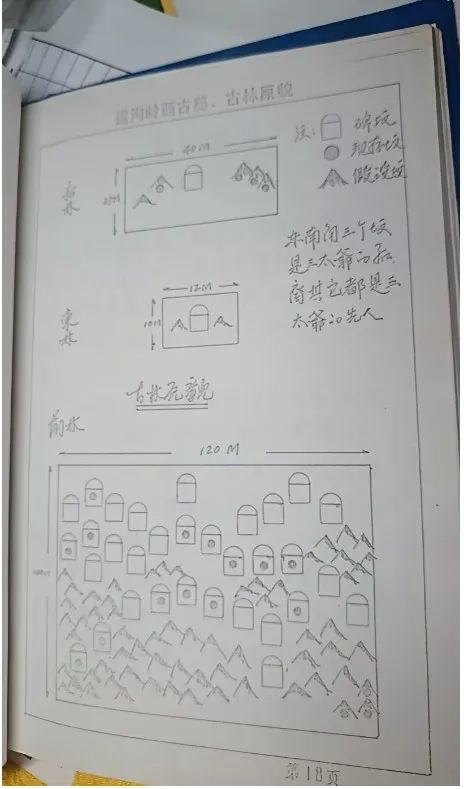 沟岭西古墓、古林原貌
注: 碑坟
40M
现存坟
假设坟
林
东南角三个坟
是三太爷的
裔其它都是三
太爷的先人
12M
10M
东林
古林原貌
前林
120M
第18页